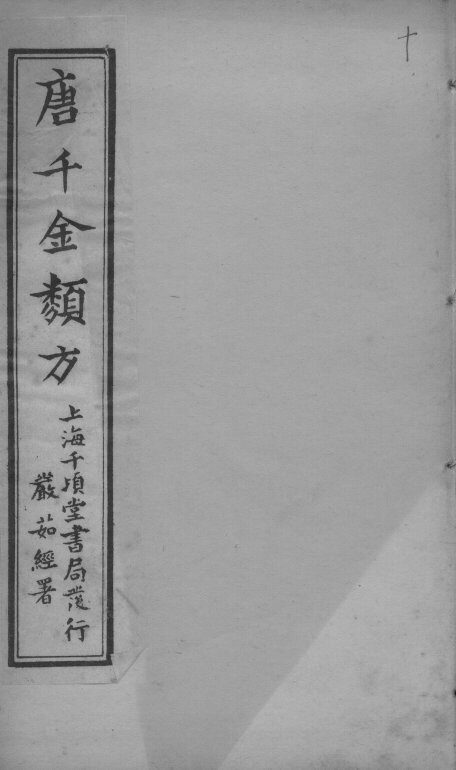 十
唐千金類方
上海千頃堂書局發行
嚴茹經署